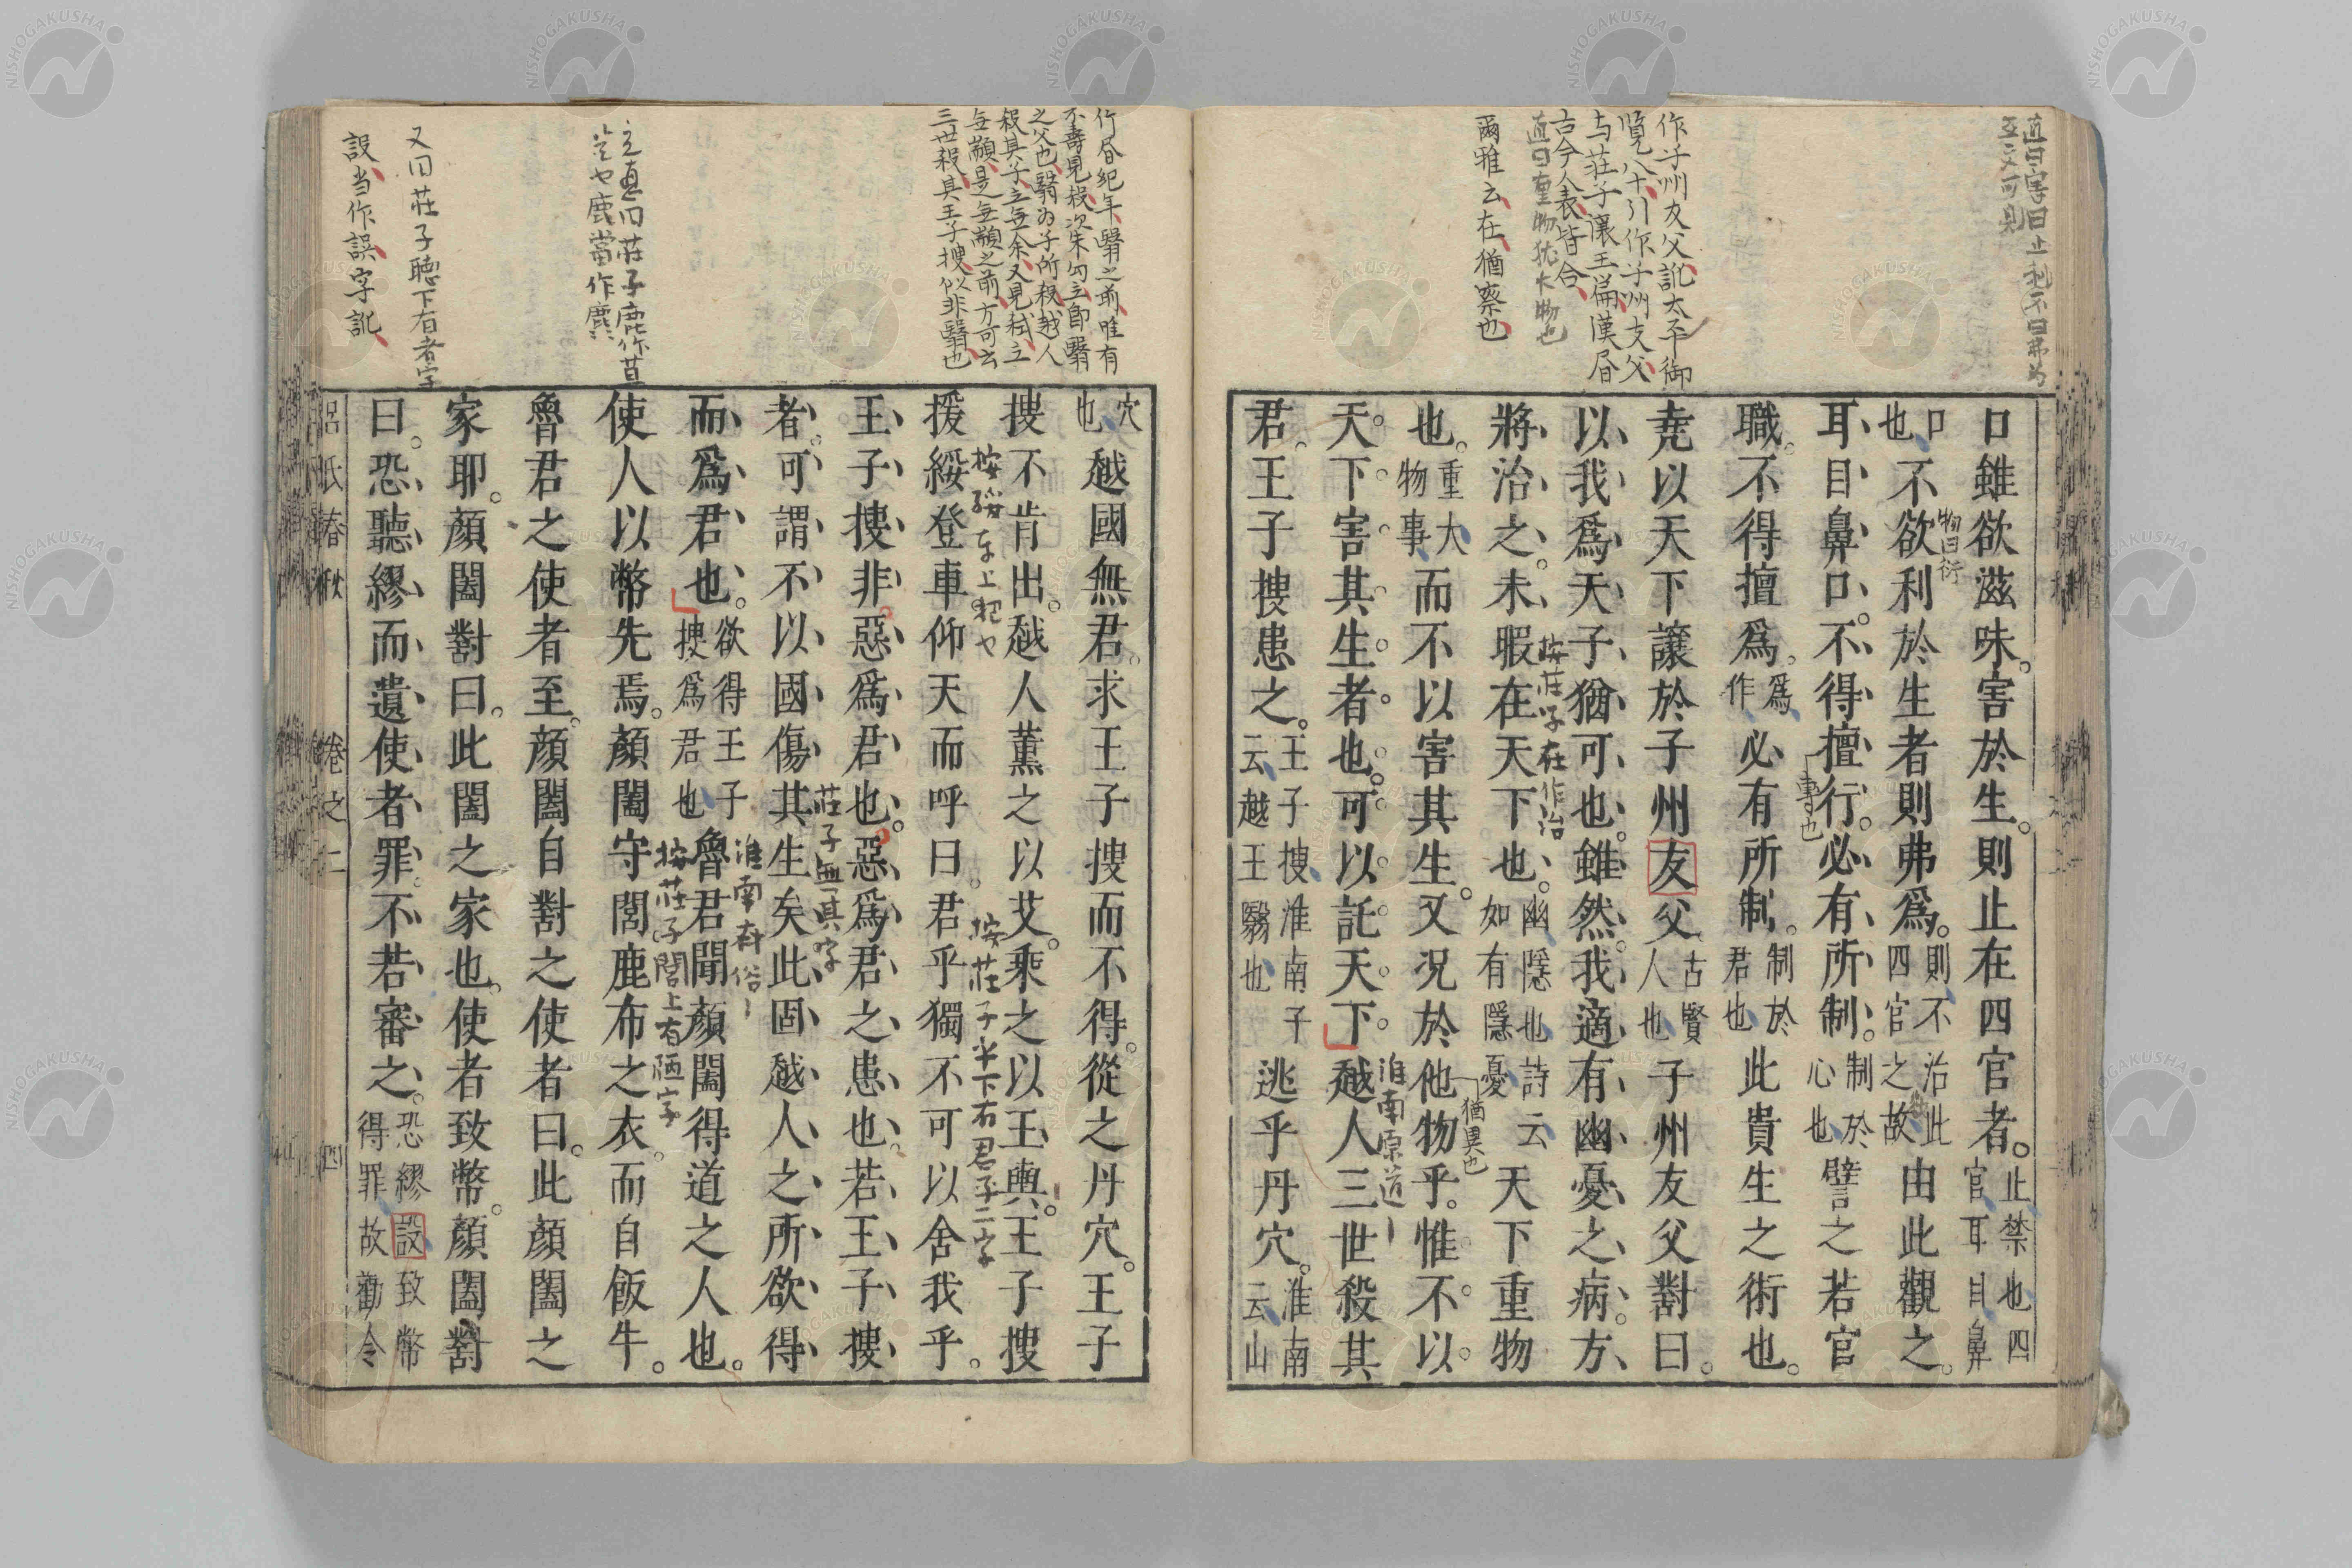 口雖欲滋味害於生則止在四官者止禁也四官耳目鼻
口也不欲利於生者則弗爲則不治此四官之故由此觀之
耳目鼻口不得擅行必有所制制於心也譬之若官
職不得擅爲爲作必有所制制於君也此貴生之術也
堯以天下讓於子州友父古賢人也子州友父對曰
以我爲天子猶可也雖然我適有幽憂之病方
將治之未暇在天下也幽隱也詩云如有隱憂天下重物
也重大物事而不以害其生又況於他物乎惟不以
天下害其生者也可以託天下越人三世殺其
君王子搜患之王子搜淮南子云越王翳也逃乎丹穴淮南云山
穴也越國無君求王子搜而不得從之丹穴王子
搜不肯出越人薰之以艾乘之以王輿王子搜
援綏登車仰天而呼曰君乎獨不可以舍我乎
王子搜非惡爲君也惡爲君之患也若王子搜
者可謂不以國傷其生矣此固越人之所欲得
而爲君也欲得王子搜爲君也魯君聞顏闔得道之人也
使人以幣先焉顏闔守閭鹿布之衣而自飯牛
魯君之使者至顏闔自對之使者曰此顏闔之
家耶顏闔對曰此闔之家也使者致幣顏闔對
曰恐聽繆而遺使者罪不若審之恐繆設致幣得罪故勸令
呂氏春秋 卷之二 四
作子州友父訛太平御
覽八十引作子州支父
与莊子讓王篇漢昏
古今人表皆合
爾雅云在猶察也
按莊子在作治
猶異也
事也
淮南原道
不壽見殺次朱句立即翳
之父也翳为子所殺越人
殺其子立無余又見弒立
無顓是無顓之前方可云
三世殺其王子搜似非翳也
按莊子乎下有君子二字
莊子無其字
按莊子閭上有陋字
鹿當作麤
又曰莊子聽下有者字
設当作誤字訛